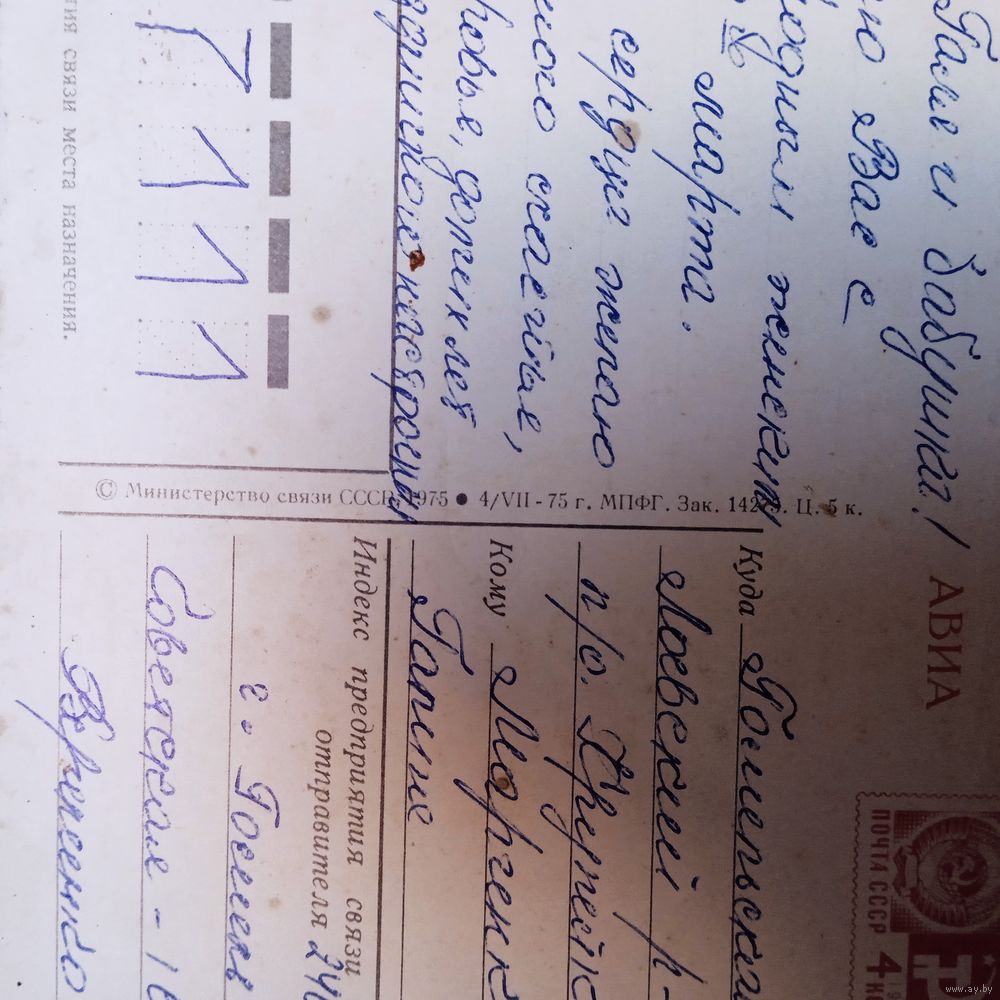 Галя и бабушка!
ю Вас с
одным женским
8 марта.
сердца желаю
ного счастья,
ровья, долгих лет
Индекс предприятия связи места назначения.
© Министерство связи СССР, 1975 ● 4/VII - 75 г. МПФГ. Зак. 14279. Ц. 5 к.
АВИА
ПОЧТА СССР
4
Куда Гомельская
Лоевский р-
п/о.
Кому Марченко
Галине
Индекс предприятия связи
отправителя 24
г. Гомель
Советская - 1
www.ay.by